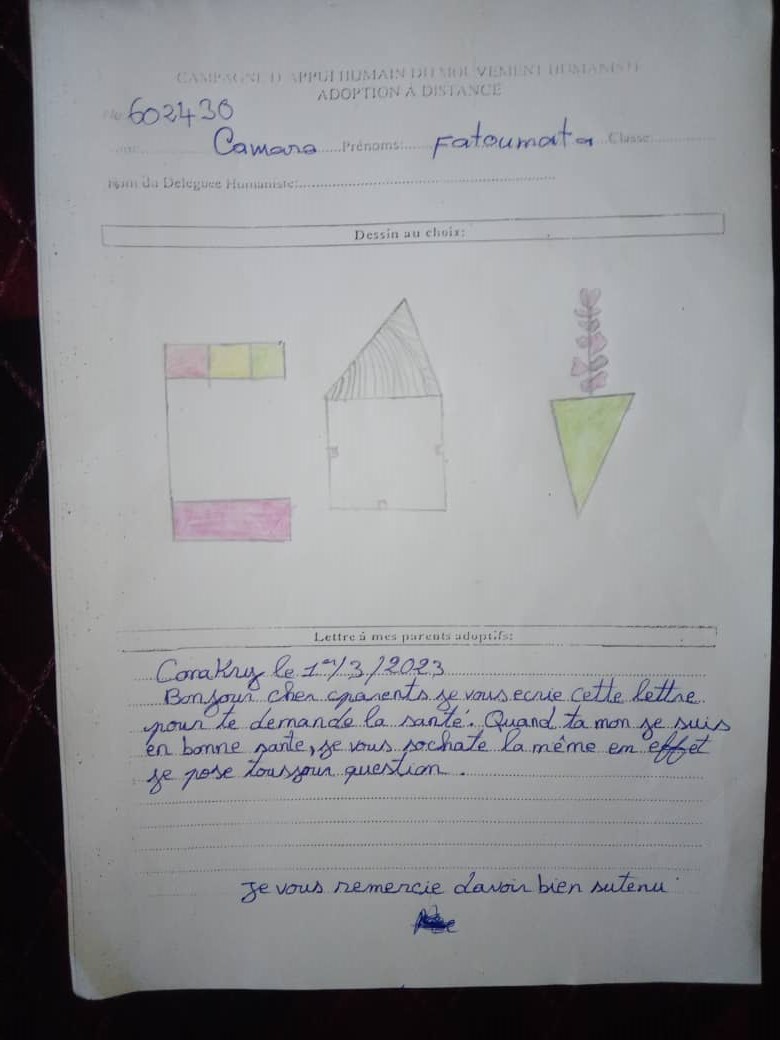 CAMPAGNE D'APPUI HUMAIN DU MOUVEMENT HUMANISTE
ADOPTION À DISTANCE
No: 602430
Nom: Camara Prénoms: Fatoumata Classe:
Nom du Déléguée Humaniste:
Dessin au choix:
Lettre à mes parents adoptifs:
Conakry le 1er/3/2023
Bonjour cher cparents je vous ecrie cette lettre
pour te demandé la santé. Quand ta mon je suis
en bonne sante, je vous sochate la même en effet
je pose toussjour question.
Je vous remercie davoir bien sutenu